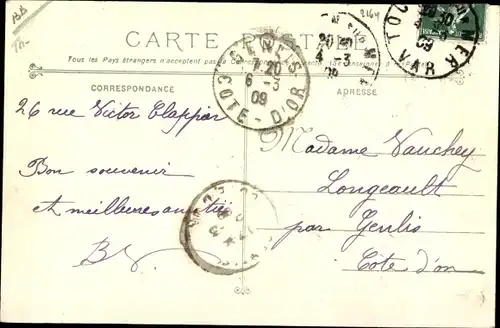 BB
2164
CARTE POSTALE
Tous les Pays étrangers n'acceptent pas
CORRESPONDANCE
ADRESSE
GENLIS
7 20
6 - 3
09
COTE-D'OR
20
4 - 3
09
4 3
09
VAR
26 rue Victor Clappier
Bon souvenir
et meilleures amitiés
Madame Vauchey
Longeault
par Genlis
Côte d'or